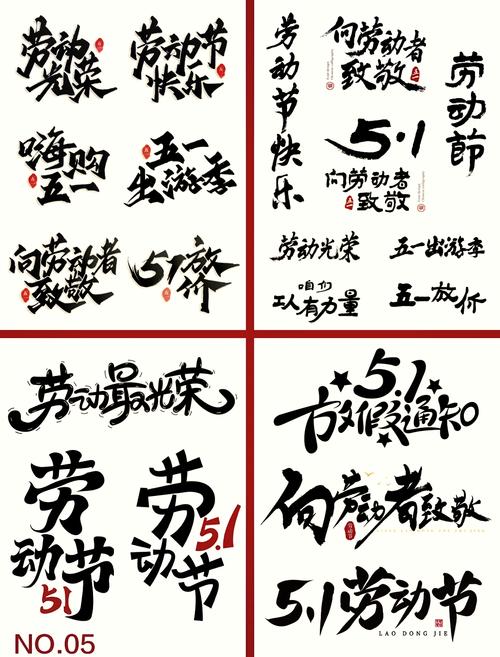 劳动
光荣
劳动节
快乐
嗨购
五一
五一
出游季
向劳动者
致敬
51放
价
劳动节快乐
向劳动者
致敬
5·1
向劳动者
致敬
劳动節
劳动光荣
五一出游季
咱们
工人有力量
五一放价
劳动最光荣
劳动节
51
劳动节
5.1
NO.05
5.1
放假通知
向劳动者致敬
5.1劳动节
LAO DONG JIE